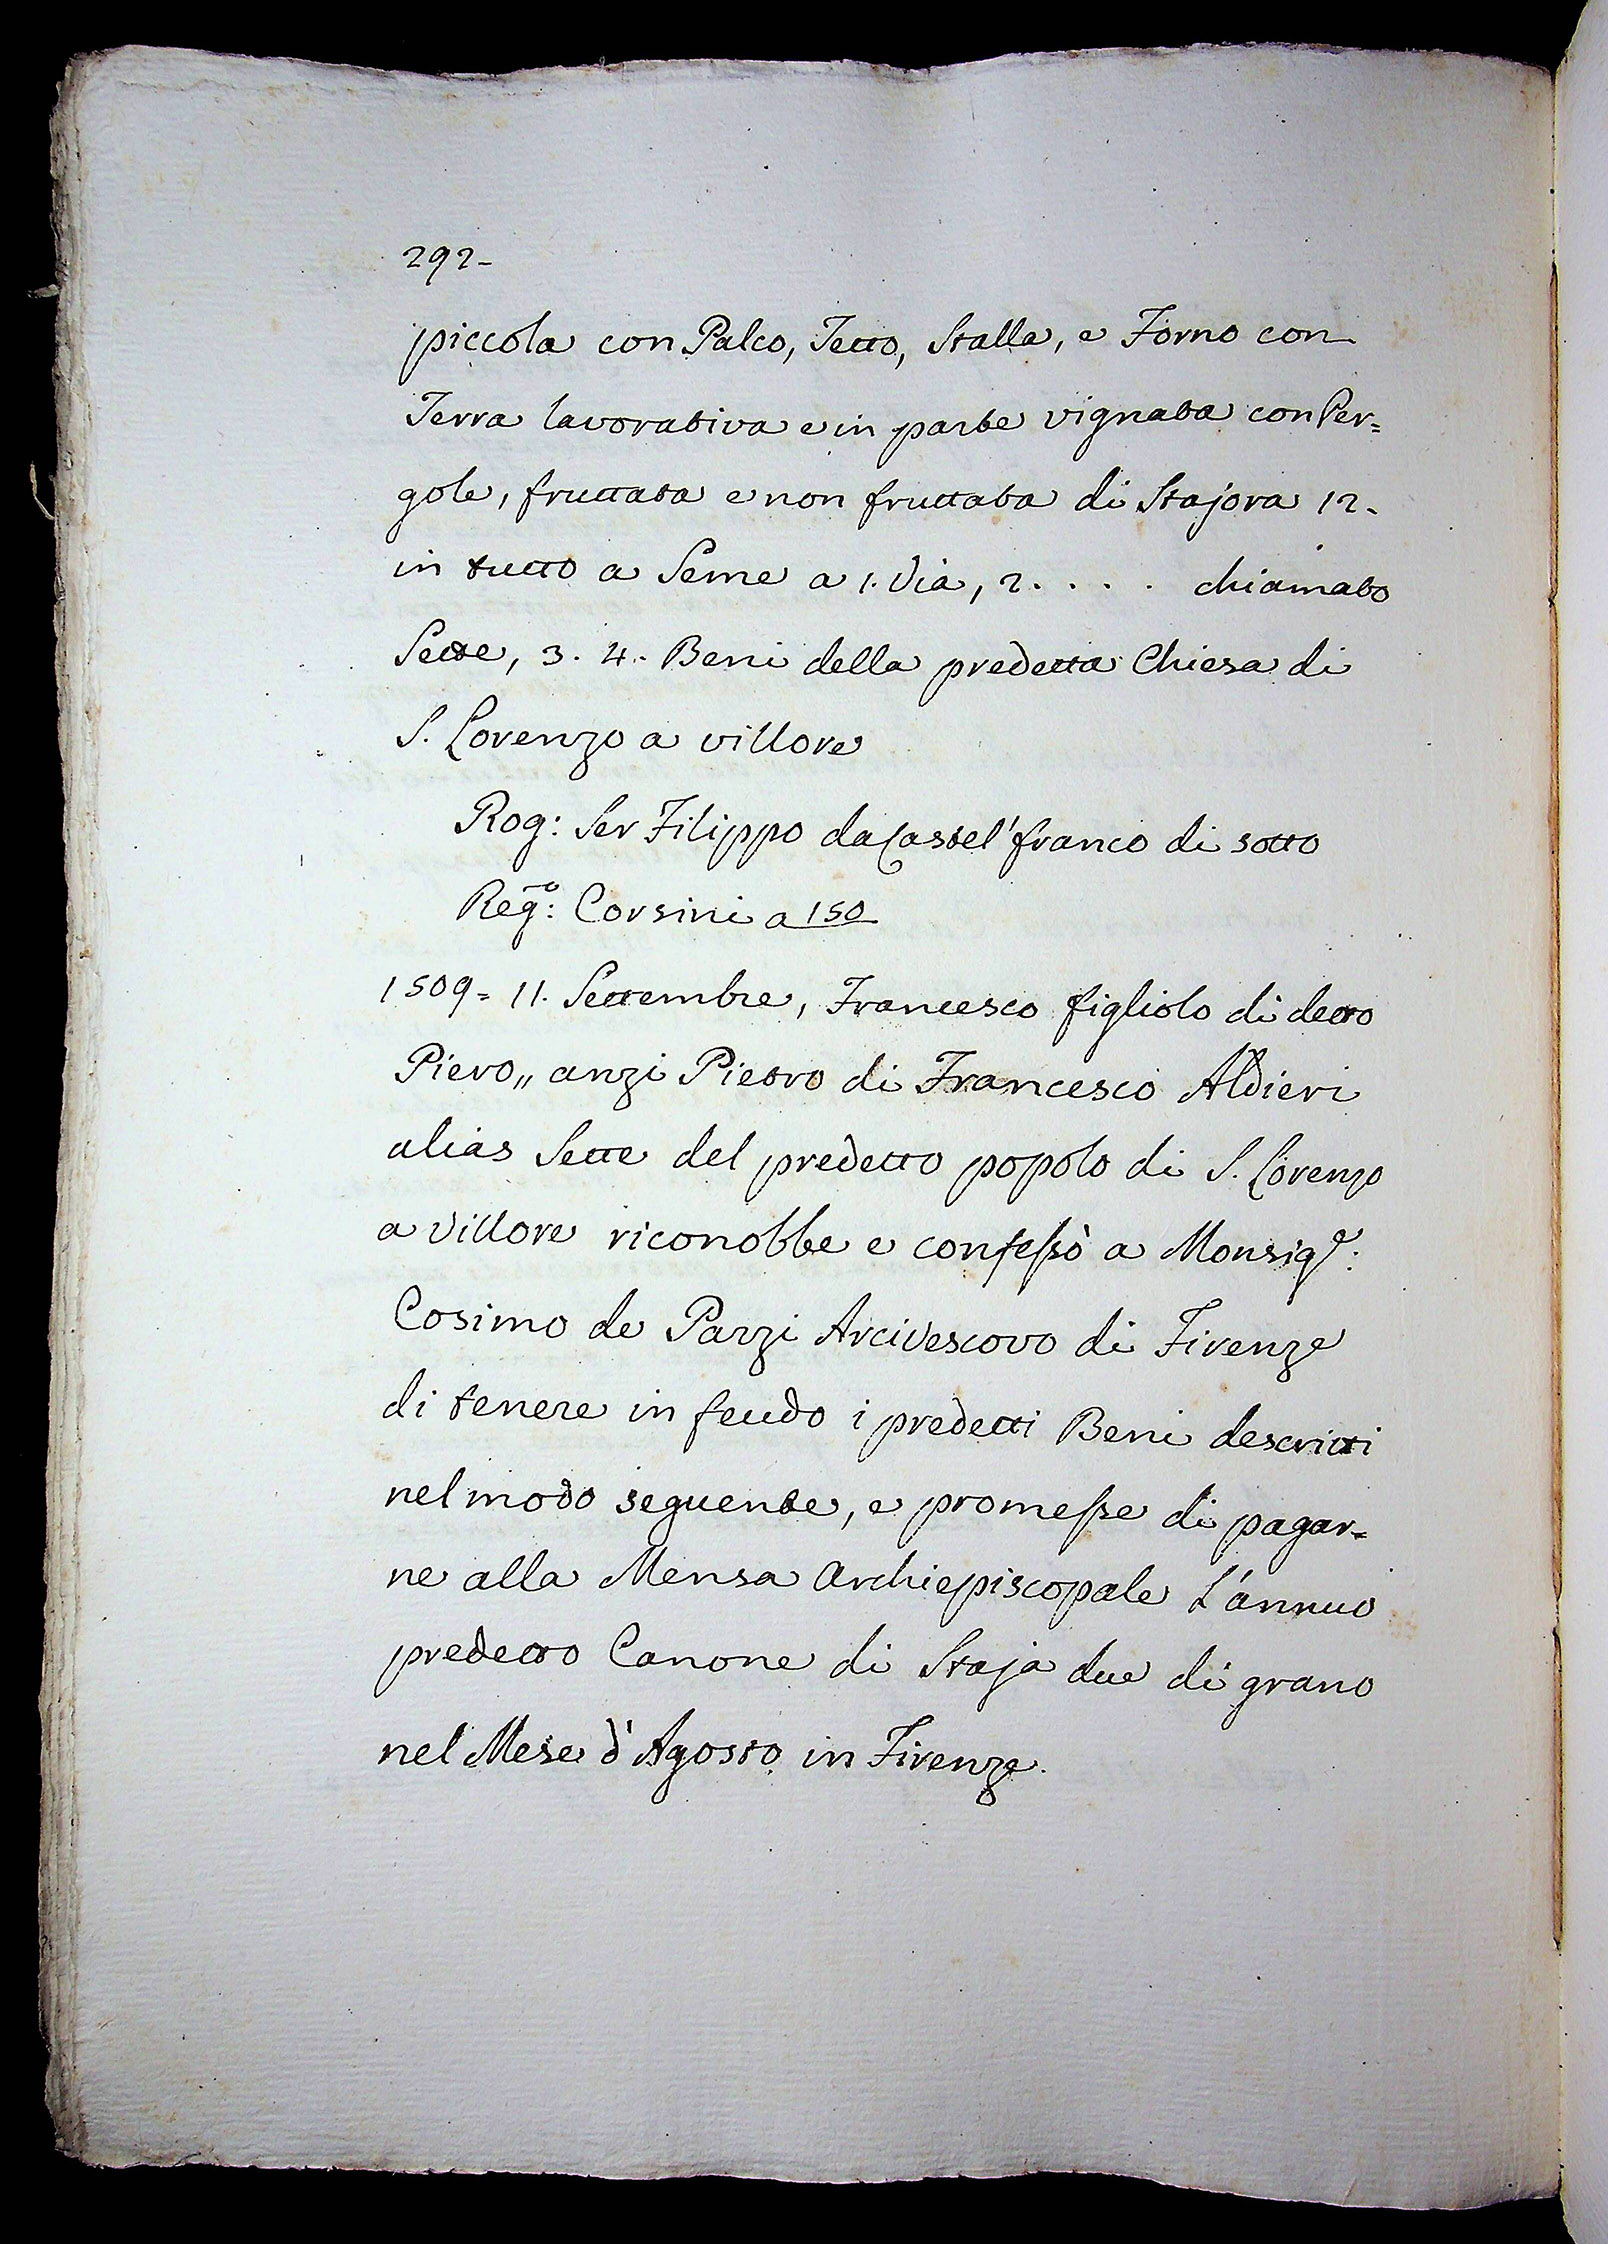 292-
piccola con Palco, Tetto, Stalla, e Forno con
Terra lavorativa e in parte vignata con Per=
gole, fruttata e non fruttata di Stajora 12.
in tutto a Seme a 1. Via, 2. . . . . chiamato
Sette, 3. 4. Beni della predetta Chiesa di
S. Lorenzo a villore
Rog: Ser Filippo da Castel' franco di sotto
Regº: Corsini a 150
1509= 11. Settembre, Francesco figliolo di detto
Piero,, anzi Pietro di Francesco Aldieri
alias Sette del predetto popolo di S. Lorenzo
a Villore riconobbe e confessò a Monsigᵉ:
Cosimo de Pazzi Arcivescovo di Firenze
di tenere in feudo i predetti Beni descritti
nel modo seguente, e promesse di pagar=
ne alla Mensa Archiepiscopale l'annuo
predetto Canone di Staja due di grano
nel Mese d'Agosto in Firenze.